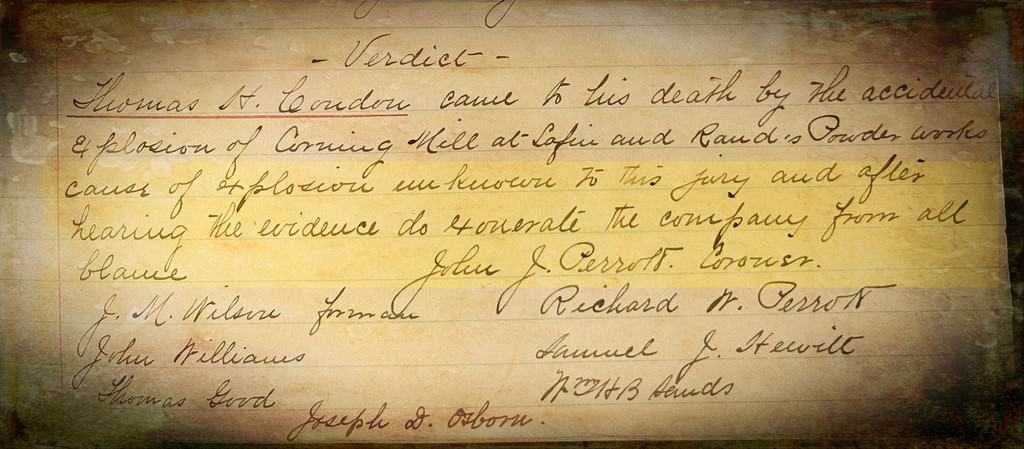 - Verdict -
Thomas H. Condon came to his death by the accidental
explosion of Corning Mill at Laflin and Rand's Powder works
cause of explosion unknown to this jury and after
hearing the evidence do exonerate the company from all
blame John J. Perrott. Coroner.
J. M. Wilson forman Richard W. Perrott
John Williams Samuel J. Hewitt
Thomas Good Wm H B Sands
Joseph D. Osborn.